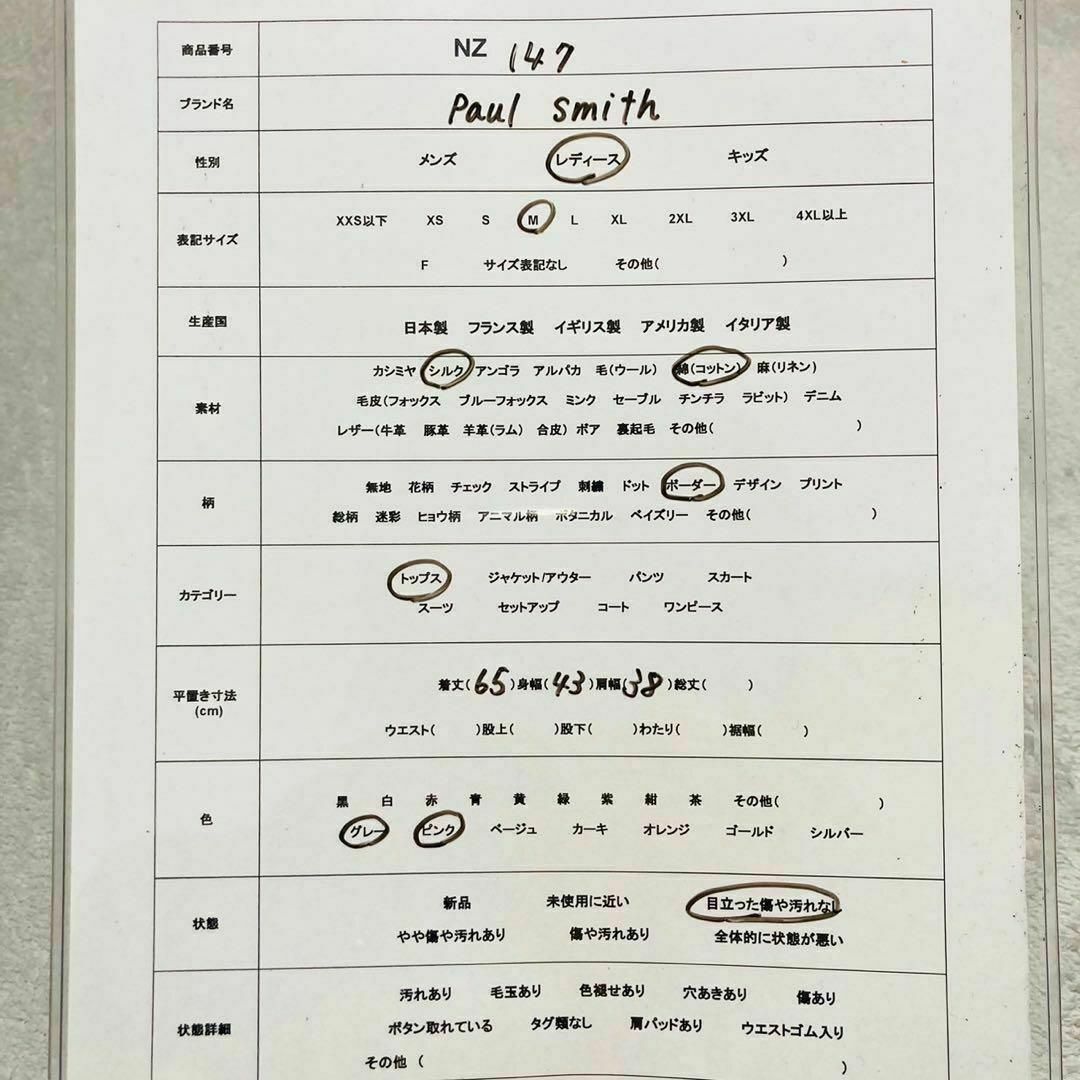 商品番号 NZ 147
ブランド名 Paul Smith
性別 メンズ レディース キッズ
表記サイズ XXS以下 XS S M L XL 2XL 3XL 4XL以上
F サイズ表記なし その他( )
生産国 日本製 フランス製 イギリス製 アメリカ製 イタリア製
素材 カシミヤ シルク アンゴラ アルパカ 毛(ウール) 綿(コットン) 麻(リネン)
毛皮(フォックス ブルーフォックス ミンク セーブル チンチラ ラビット) デニム
レザー(牛革 豚革 羊革(ラム) 合皮) ボア 裏起毛 その他( )
柄 無地 花柄 チェック ストライプ 刺繍 ドット ボーダー デザイン プリント
総柄 迷彩 ヒョウ柄 アニマル柄 ボタニカル ペイズリー その他( )
カテゴリー トップス ジャケット/アウター パンツ スカート
スーツ セットアップ コート ワンピース
平置き寸法 (cm) 着丈(65)身幅(43)肩幅(38)総丈( )
ウエスト( )股上( )股下( )わたり( )裾幅( )
色 黒 白 赤 青 黄 緑 紫 紺 茶 その他( )
グレー ピンク ベージュ カーキ オレンジ ゴールド シルバー
状態 新品 未使用に近い 目立った傷や汚れなし
やや傷や汚れあり 傷や汚れあり 全体的に状態が悪い
状態詳細 汚れあり 毛玉あり 色褪せあり 穴あきあり 傷あり
ボタン取れている タグ類なし 肩パッドあり ウエストゴム入り
その他 ( )